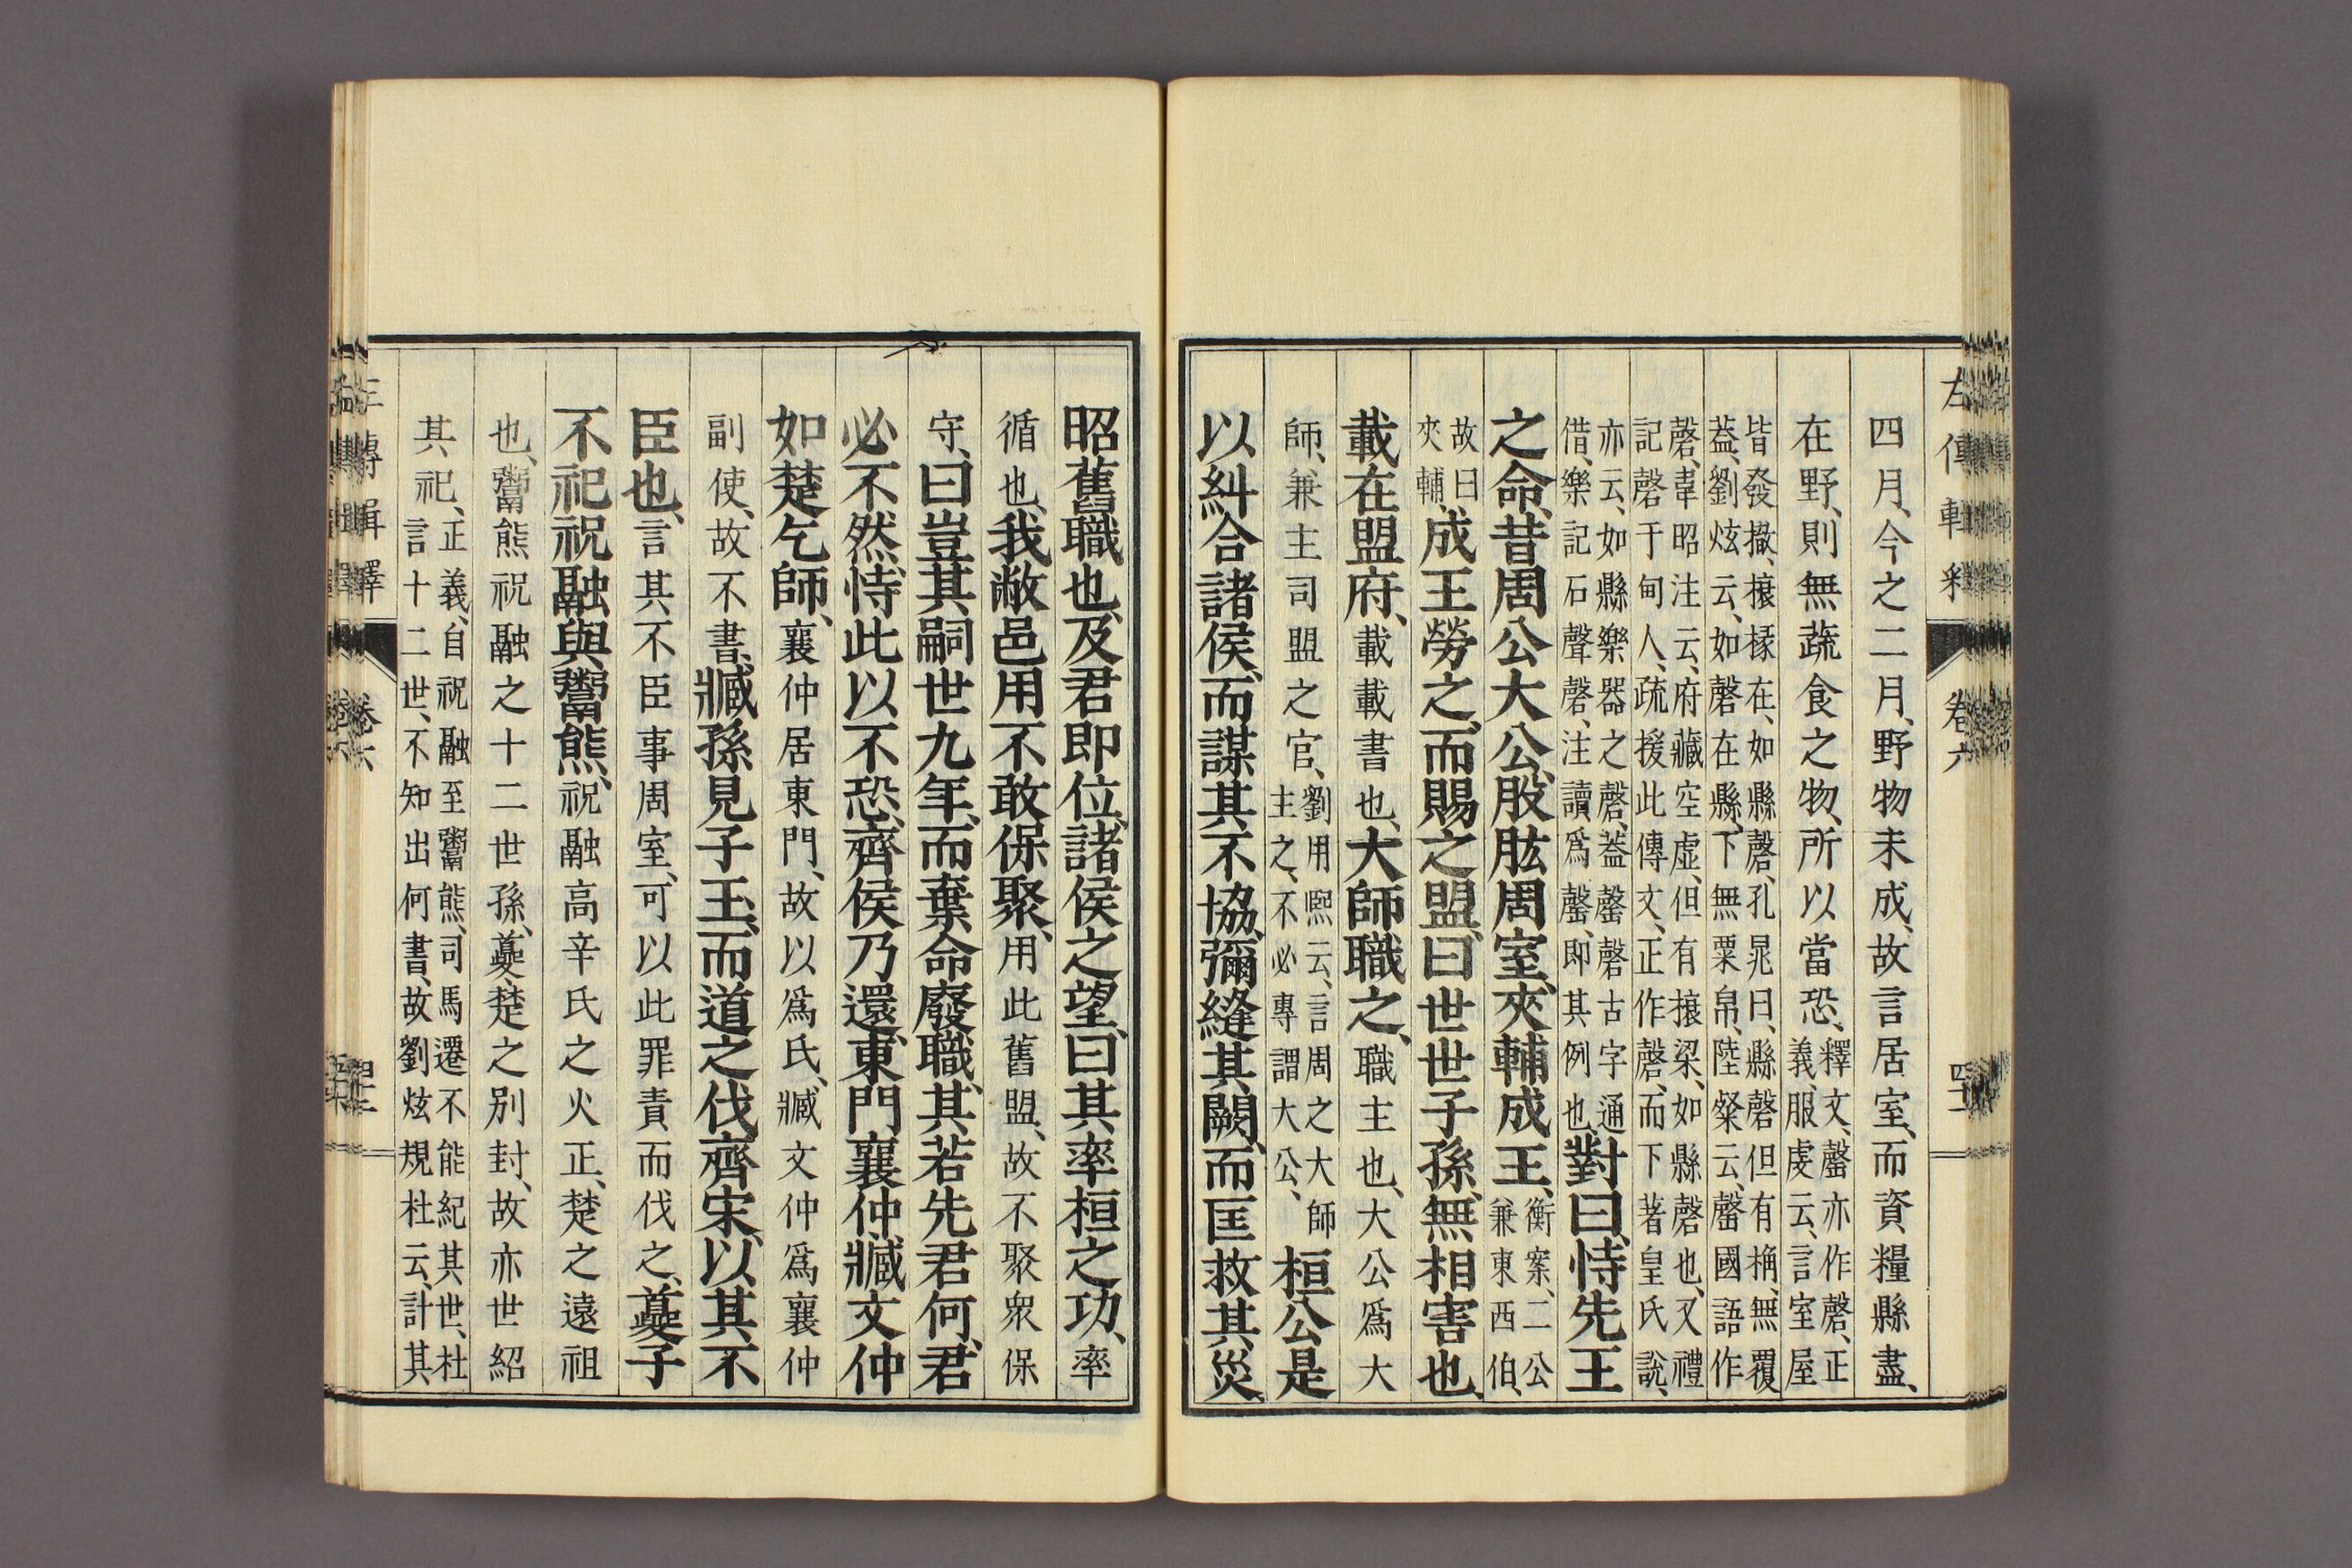 四月、今之二月、野物未成、故言居室、而資糧縣盡、
在野、則無蔬食之物、所以當恐、釋文、罄亦作磬、正
義、服虔云、言室屋
皆發撤、榱椽在、如縣磬、孔晁曰、縣磬但有桷、無覆
蓋、劉炫云、如磬在縣、下無粟帛、陸粲云、罄國語作
磬、韋昭注云、府藏空虛、但有榱梁、如縣磬也、又禮
記磬于甸人、疏援此傳文、正作磬、而下著皇氏說、
亦云、如縣樂器之磬、蓋罄磬古字通
借、樂記石聲磬、注讀爲罄、即其例也、對曰、恃先王
之命、昔周公大公、股肱周室、夾輔成王、衡案、二公
兼東西伯、
故曰
夾輔、成王勞之、而賜之盟、曰世世子孫、無相害也、
載在盟府、載載書也、大師職之、職主也、大公爲大
師、兼主司盟之官、劉用熙云、言周之大師
主之、不必專謂大公、桓公是
以糾合諸侯、而謀其不協、彌縫其闕、而匡救其災、
左傳輯釋 卷六
昭舊職也、及君即位、諸侯之望、曰其率桓之功、率
循也、我敝邑用不敢保聚、用此舊盟、故不聚衆保
守、曰豈其嗣世九年、而棄命廢職、其若先君何、君
必不然、恃此以不恐、齊侯乃還、東門襄仲臧文仲
如楚乞師、襄仲居東門、故以爲氏、臧文仲爲襄仲
副使、故不書、臧孫見子玉、而道之伐齊宋、以其不
臣也、言其不臣事周室、可以此罪責而伐之、夔子
不祀祝融與鬻熊、祝融高辛氏之火正、楚之遠祖
也、鬻熊祝融之十二世孫、夔、楚之別封、故亦世紹
其祀、正義、自祝融至鬻熊、司馬遷不能紀其世、杜
言十二世、不知出何書、故劉炫規杜云、計其